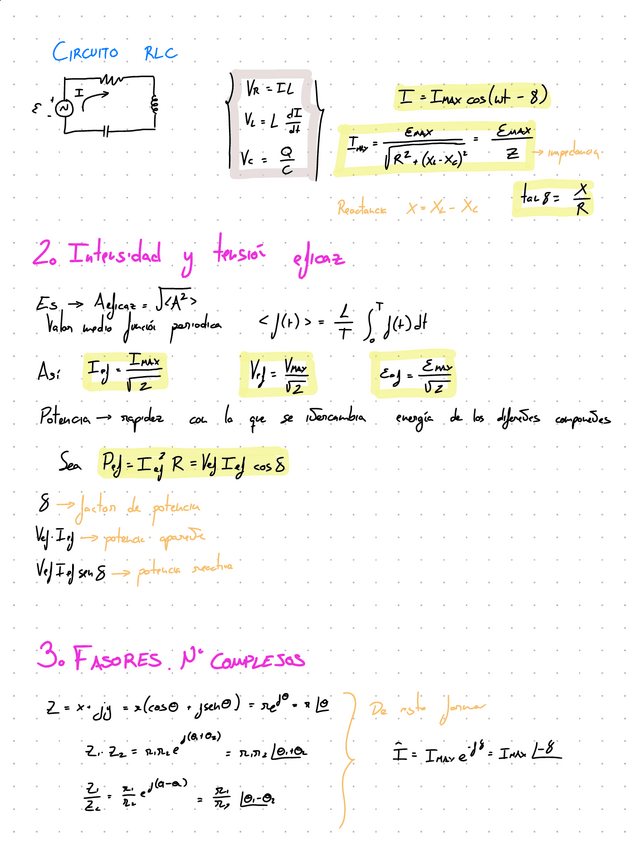 CIRCUITO RLC
ε + - I
V_R = IL
V_L = L dI/dt
V_C = Q/C
I = I_MAX cos(ωt - δ)
I_MAX = ε_MAX / √(R² + (X_L - X_C)²) = ε_MAX / Z → impedancia
Reactancia X = X_L - X_C
tan δ = X/R
2. Intensidad y tensión eficaz
Es → A_eficaz = √<A²>
Valor medio función periodica <f(t)> = 1/T ∫₀ᵀ f(t) dt
Así I_ef = I_MAX/√2 V_ef = V_MAX/√2 ε_ef = ε_MAX/√2
Potencia → rapidez con la que se intercambia energía de los diferentes componentes
Sea P_ef = I_ef² R = V_ef I_ef cos δ
δ → factor de potencia
V_ef · I_ef → potencia aparente
V_ef I_ef sen δ → potencia reactiva
3. FASORES. Nº COMPLEJOS
Z = x + jy = r(cos θ + j sen θ) = r e^{jθ} = r ∠θ
Z₁ · Z₂ = r₁r₂ e^{j(θ₁+θ₂)} = r₁r₂ ∠θ₁+θ₂
Z₁/Z₂ = r₁/r₂ e^{j(θ₁-θ₂)} = r₁/r₂ ∠θ₁-θ₂
De esta forma
Î = I_MAX e^{-jδ} = I_MAX ∠-δ